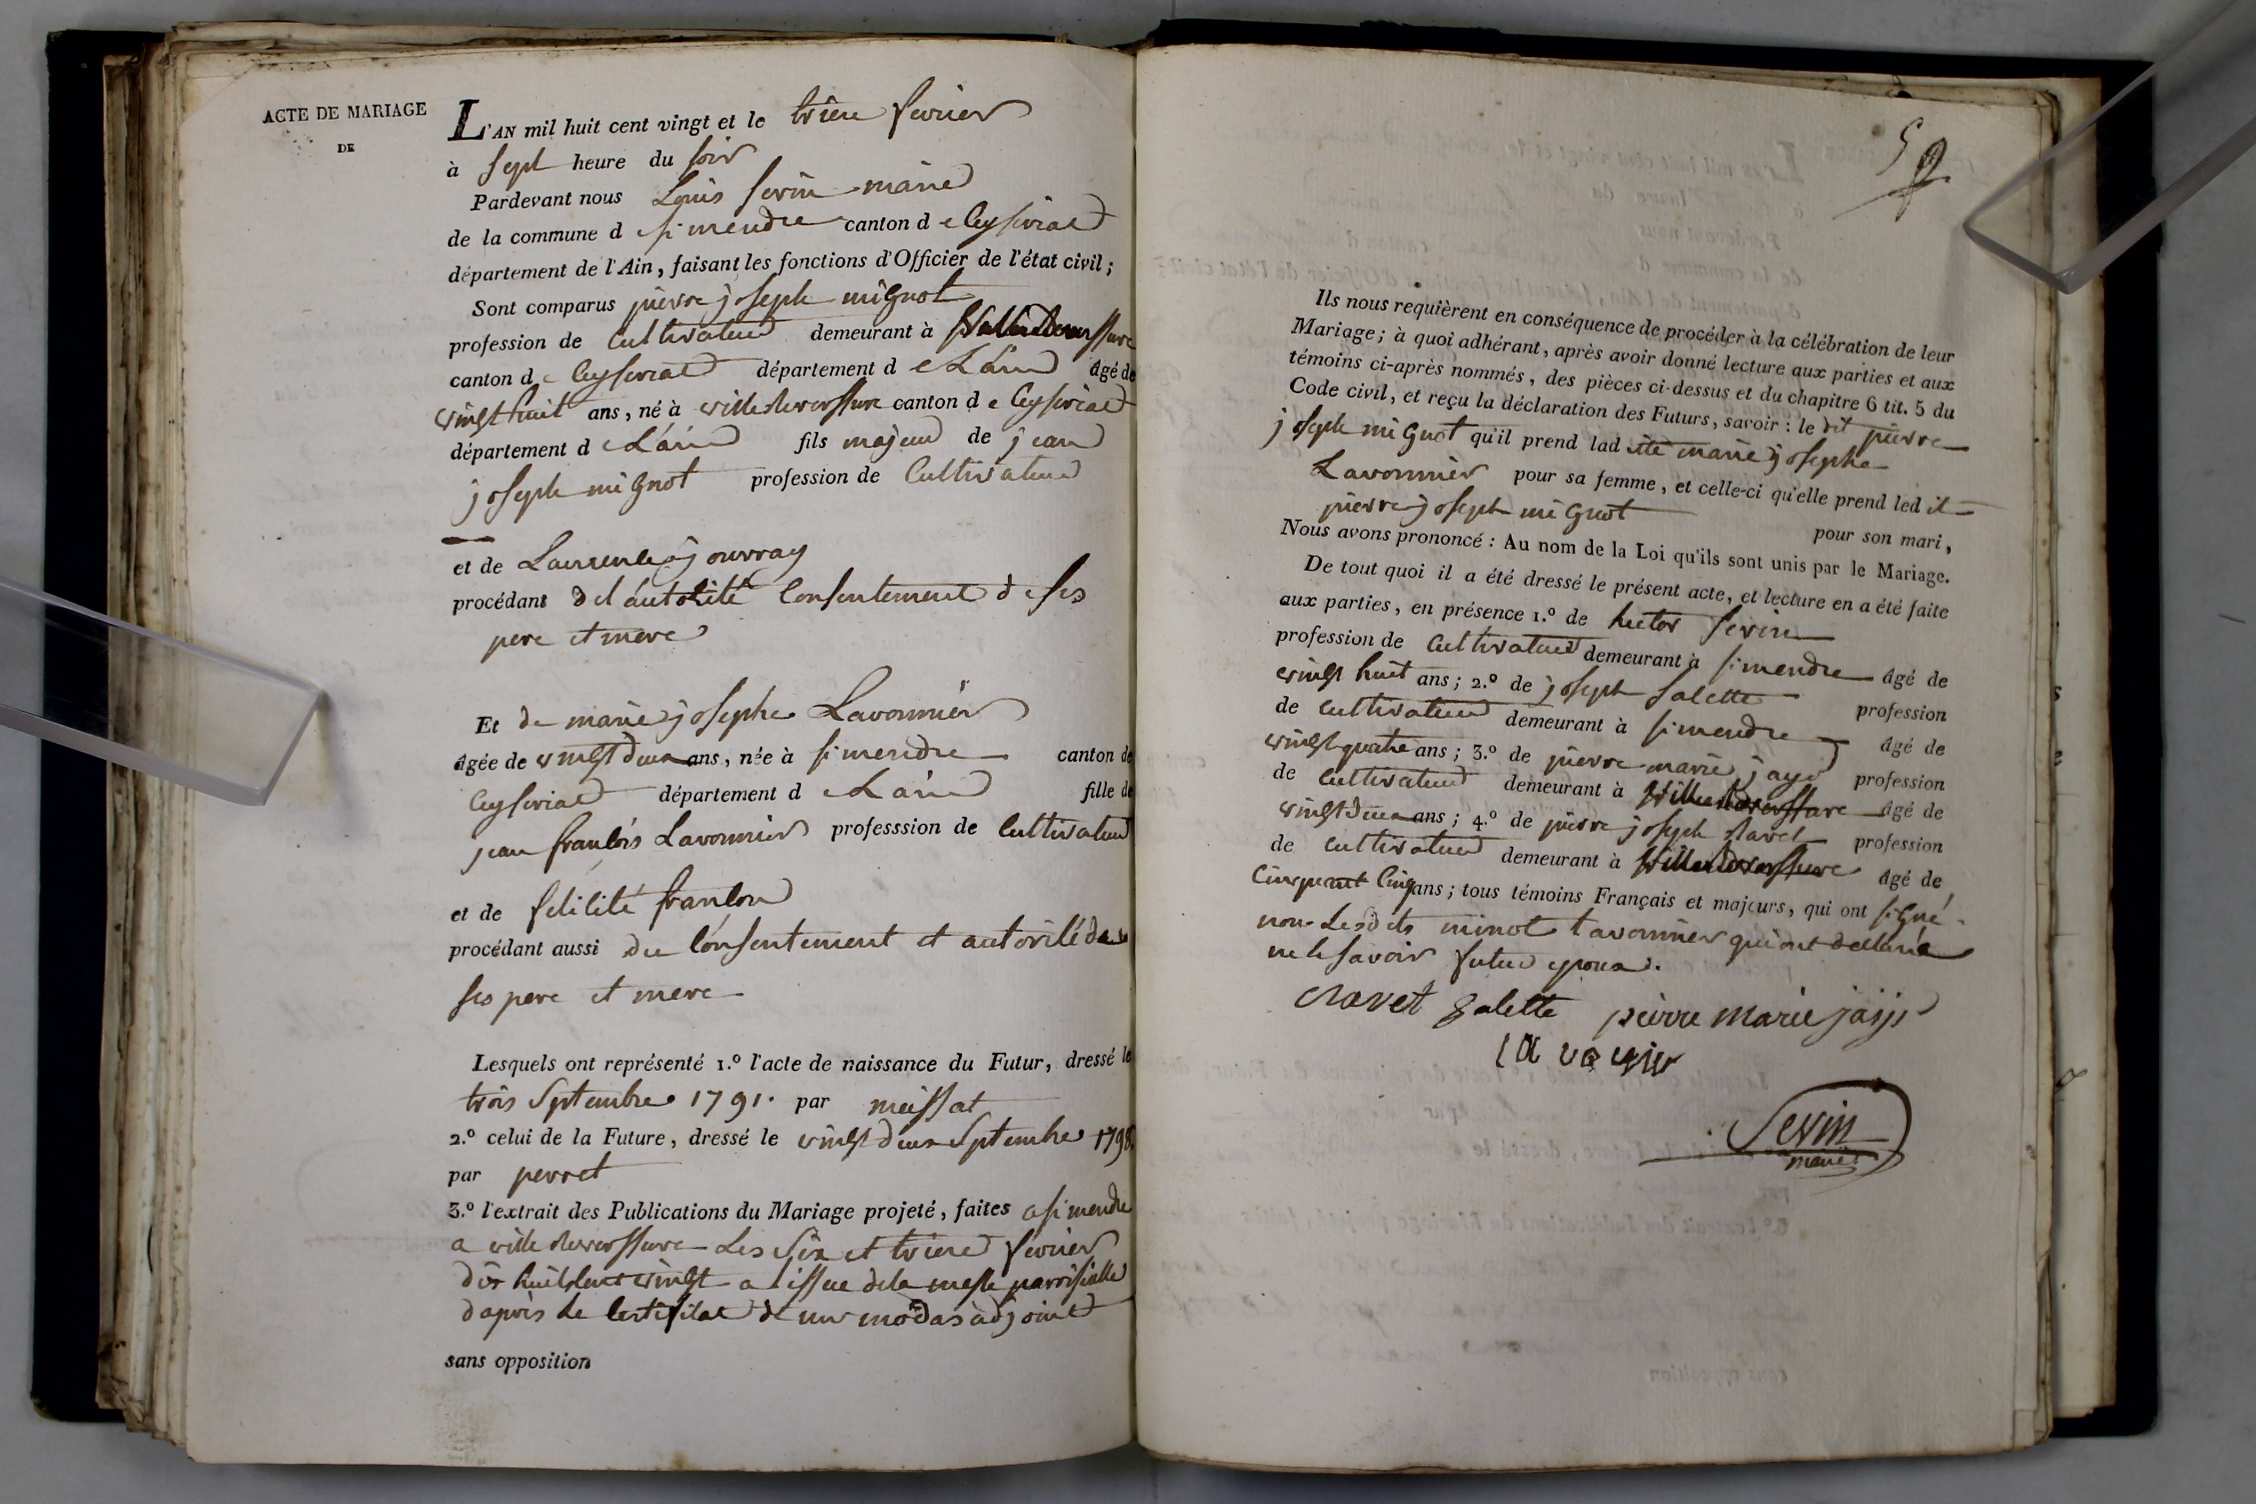 ACTE DE MARIAGE
DE
L'AN mil huit cent vingt et le trieze fevrier
à sept heure du soir
Pardevant nous Louis sevin maire
de la commune d simendre canton d e Ceyseriat
département de l'Ain, faisant les fonctions d'Officier de l'état civil;
Sont comparus pierre joseph mignot
profession de Cultivateur demeurant à
canton d e Ceyseriat département d e L'ain âgé de
vingt huit ans, né à villereversure canton d e Ceyseriat
département d e L'ain fils majeur de jean
joseph mignot profession de Cultivateur
et de Laurence jouvray
procédant del'autorité Consentement de ses
pere et mere
Et de marie josephe Lavonnier
âgée de vingt deux ans, née à simendre canton de
Ceyseriat département d e L'ain fille de
jean françois Lavonnier professsion de Cultivateur
et de felicité françon
procédant aussi du Consentement et autorité de
ses pere et mere
Lesquels ont représenté 1.º l'acte de naissance du Futur, dressé le
trois Septembre 1791. par meissat
2.º celui de la Future, dressé le vingt deux Septembre 1798.
par perret
3.º l'extrait des Publications du Mariage projeté, faites a simendre
a villereversure Les Six et trieze fevrier
dix huit cent vingt a lissue dela messe parroisialle
dapres le Certificat de mr modas adjoint
sans opposition
59
Ils nous requièrent en conséquence de procéder à la célébration de leur
Mariage; à quoi adhérant, après avoir donné lecture aux parties et aux
témoins ci-après nommés, des pièces ci-dessus et du chapitre 6 tit. 5 du
Code civil, et reçu la déclaration des Futurs, savoir : le dit pierre
joseph mignot qu'il prend lad ite marie josephe
Lavonnier pour sa femme, et celle-ci qu'elle prend led it
pierre joseph mignot pour son mari,
Nous avons prononcé : Au nom de la Loi qu'ils sont unis par le Mariage.
De tout quoi il a été dressé le présent acte, et lecture en a été faite
aux parties, en présence 1.º de hector sevin
profession de Cultivateur demeurant à simendre âgé de
vingt huit ans; 2.º de joseph Salette profession
de Cultivateur demeurant à simendre âgé de
vingt quatre ans; 3.º de pierre marie jays profession
de Cultivateur demeurant à villereversure âgé de
vingt deux ans; 4.º de pierre joseph ravet profession
de Cultivateur demeurant à villereversure âgé de
Cinquant Cinq ans; tous témoins Français et majeurs, qui ont signé
non Lesdits minot Lavonnier qui ont declaré
ne le savoir futur epoux.
ravet Salette pierre marie jays
Sevin
maire